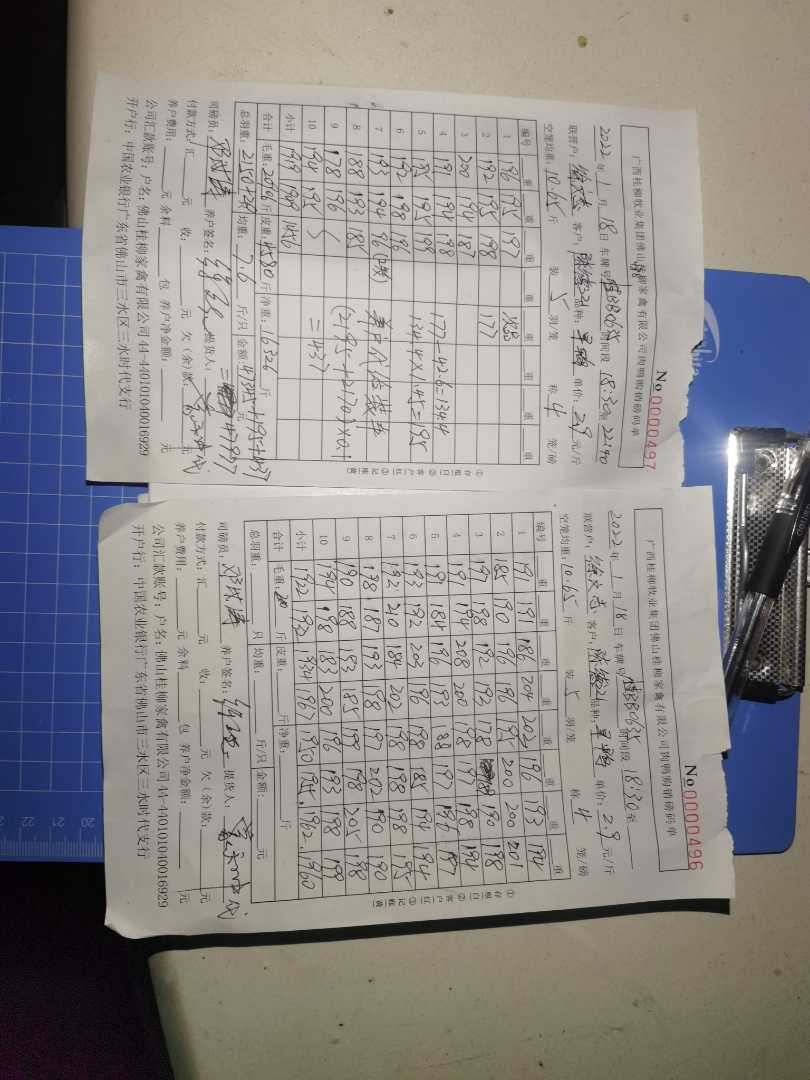 No 0000497
广西桂柳牧业集团佛山桂柳家禽有限公司肉鸭购销磅码单
2022 年 1 月 18 日 车牌号 时间段 18:30至 22:40
联营户: 徐文志 客户: 品种: 单价: 2.9 元/斤
空笼均重: 10.65 斤 装 5 羽/笼 称 4 笼/磅
编号 重 重 重 重 重 重 重 重
1 196 195 197
2 192 195 198 177
3 200 194 187
4 191 194 198 177-42.6=134.4
5 185 195 198 134.4×1.45=195
6 192 198 196
7 193 194 96
8 188 193 185
9 178 196
10 194 195 =437
小计 1919 1949 1456
合计 毛重: 斤 皮重: 斤 净重: 斤
总羽重: 均重: 7.6 斤/只 金额: 元
司磅员: 养户签名: 提货人:
付款方式: 汇 元 收: 元 欠(余)款: 元
养户费用: 元 余料 包 养户净金额: 元
公司汇款账号: 户名: 佛山桂柳家禽有限公司 44-440101040016929
开户行: 中国农业银行广东省佛山市三水区三水时代支行
①存根白 ②客户红 ③记账黄
No 0000496
广西桂柳牧业集团佛山桂柳家禽有限公司肉鸭购销磅码单
2022 年 1 月 18 日 车牌号 时间段 18:30 至
联营户: 徐文志 客户: 品种: 单价: 2.9 元/斤
空笼均重: 10.65 斤 装 5 羽/笼 称 4 笼/磅
编号 重 重 重 重 重 重 重 重
1 191 191 186 204 202 196 193 194
2 185 190 196 196 195 200 200 201
3 197 198 192 193 178 190 188
4 191 194 208 200 198 197 198 194
5 191 184 196 193 188 197 196 197
6 193 192 202 196 198 185 194 194
7 192 210 184 202 198 188 198 195
8 198 187 193 198 197 202 190 190
9 190 188 193 195 198 198 205 198
10 194 198 183 200 196 193 198 199
小计 1922 1932 1934 1967 1950 1945 1962 1960
合计 毛重: 斤 皮重: 斤 净重: 斤
总羽重: 只 均重: 斤/只 金额: 元
司磅员: 养户签名: 提货人:
付款方式: 汇 元 收: 元 欠(余)款: 元
养户费用: 元 余料 包 养户净金额: 元
公司汇款账号: 户名: 佛山桂柳家禽有限公司 44-440101040016929
开户行: 中国农业银行广东省佛山市三水区三水时代支行
①存根白 ②客户红 ③记账黄
19 20 21 22